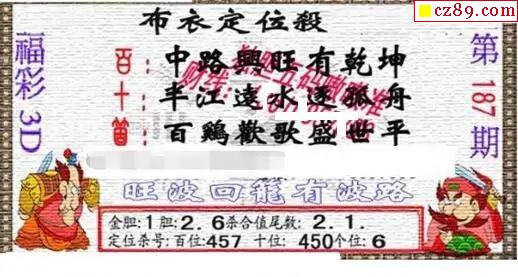 cz89.com
布衣定位殺
福彩3D
第187期
百：中路興旺有乾坤
十：半江遠水逐孤舟
百鷄歡歌盛世平
旺波回龍有波路
金胆:1 胆:2.6杀合值尾数:2.1.
定位杀号:百位:457 十位:450个位:6